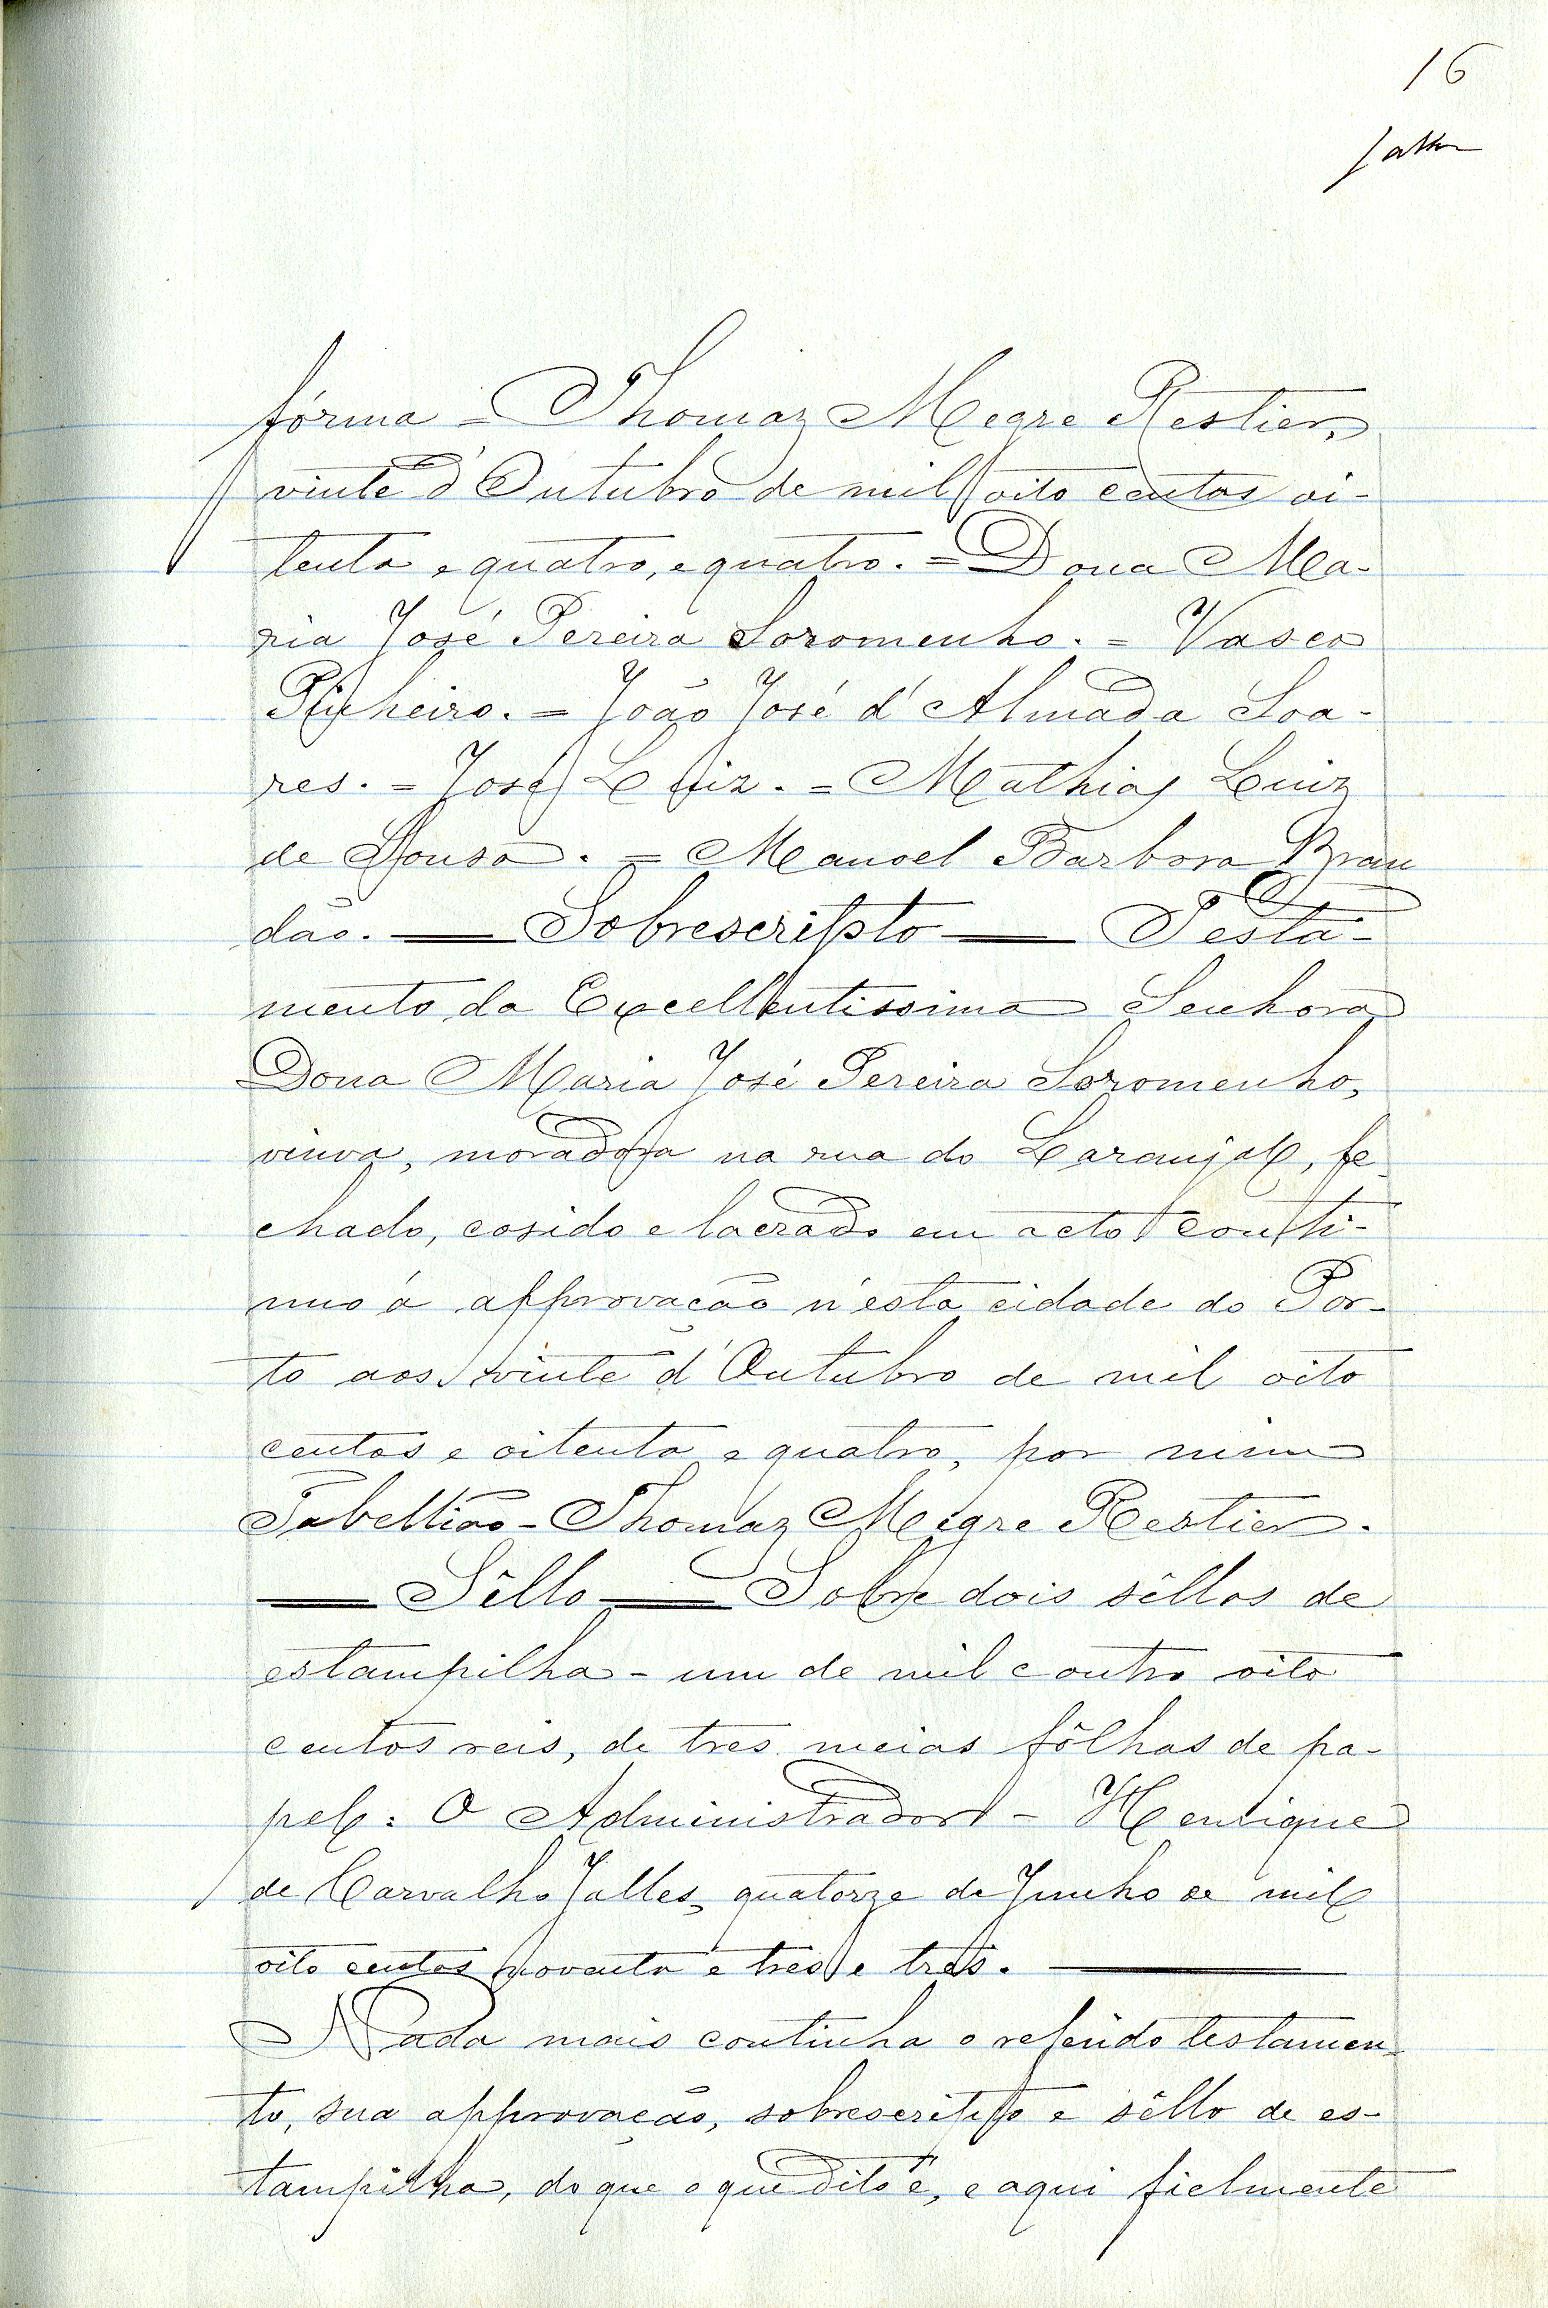 16
Jalles
fórma = Thomaz Megre Restier,
vinte d'Outubro de mil oito centos oi-
tenta e quatro, e quatro. = Dona Ma-
ria José Pereira Soromenho. = Vasco
Pinheiro. = João José d'Almada Soa-
res. = José Luiz. = Mathias Luiz
de Sousa. = Manoel Barbosa Bran
dão. — Sobrescripto — Testa-
mento da Excellentissima Senhora
Dona Maria José Pereira Soromenho,
viuva, moradora na rua do Laranjal, fe-
chado, cosido e lacrado em acto conti-
nuo á approvação n'esta cidade do Por-
to aos vinte d'Outubro de mil oito
centos e oitenta e quatro, por mim
Tabellião - Thomaz Megre Restier.
— Sêllo — Sobre dois sêllos de
estampilha - um de mil e outro oito
centos reis, de tres meias fôlhas de pa-
pel: O Administrador - Henrique
de Carvalho Jalles, quatorze de Junho de mil
oito centos noventa e tres e tres. —
Nada mais continha o referido testamen-
to, sua approvação, sobrescripto e sêllo de es-
tampilha, do que o que dito é, e aqui fielmente